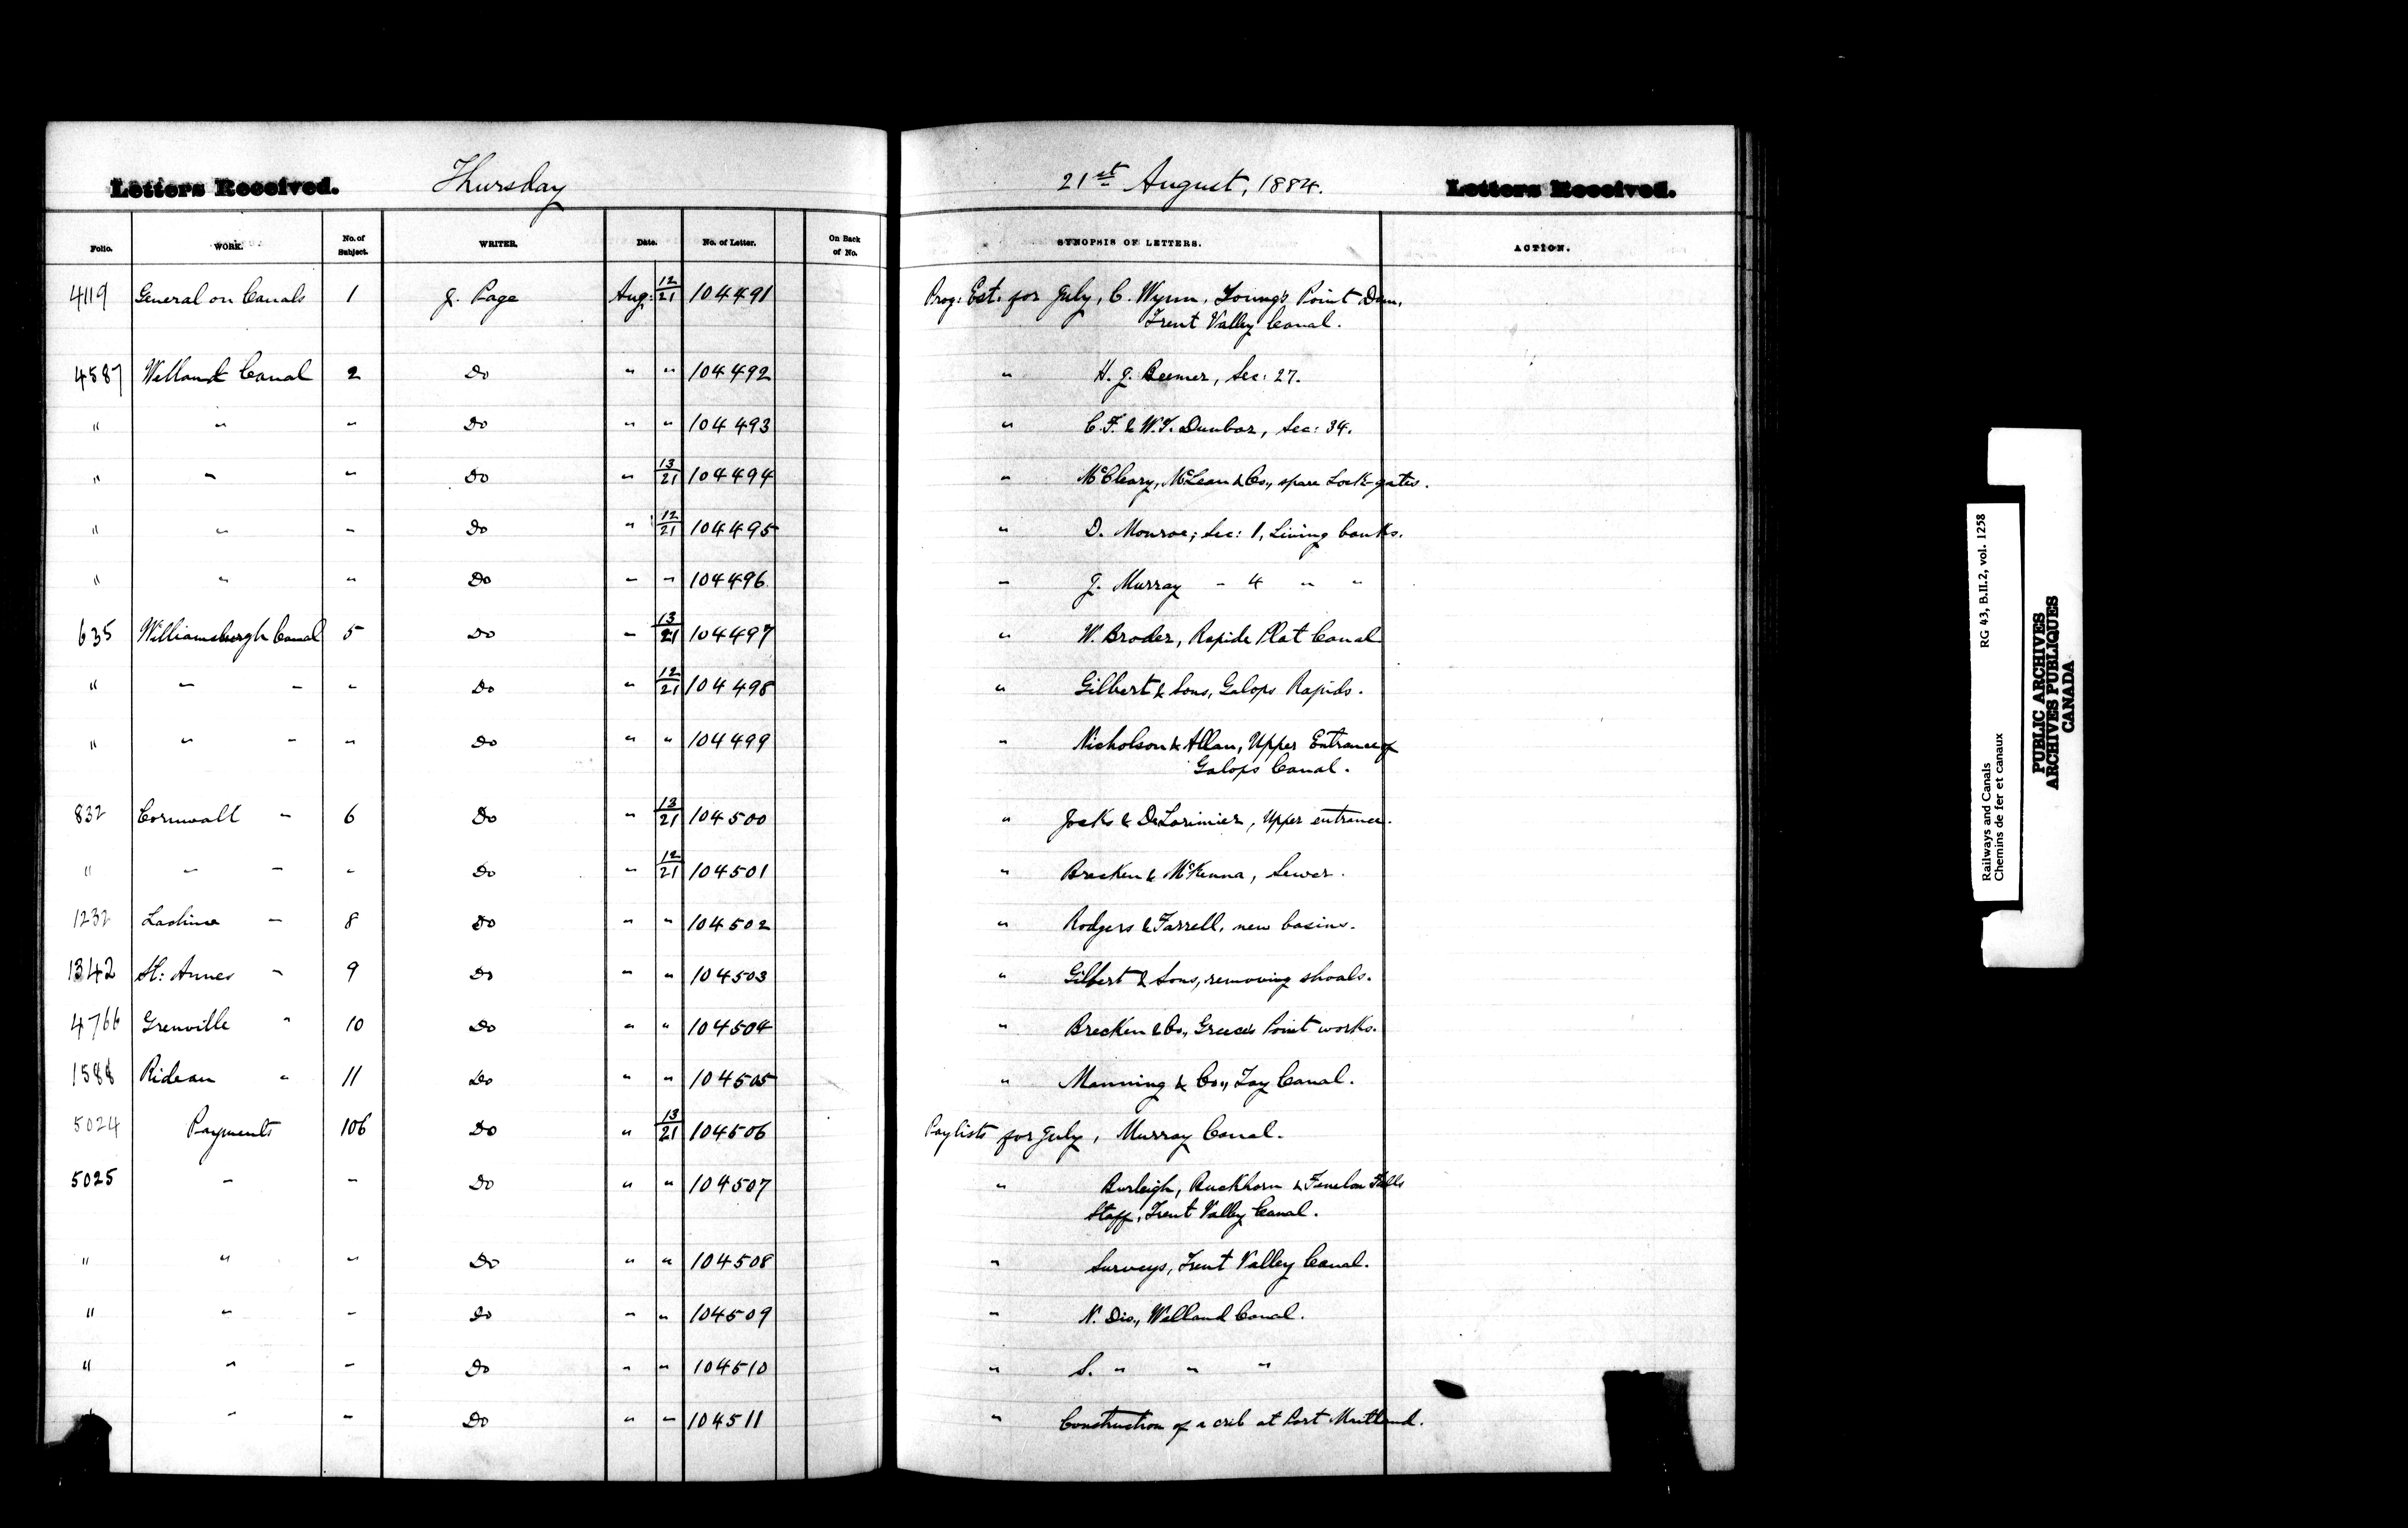 Letters Received. Thursday 21st August, 1884. Letters Received.
Folio. WORK. No. of Subject. WRITER. Date. No. of Letter. On Back of No. SYNOPSIS OF LETTERS. ACTION.
4119 General on Canals 1 J. Page Aug: 12/21 104491 Prog: Est. for July, C. Wynn, Young's Point Dam,
Trent Valley Canal.
4587 Welland Canal 2 Do " " 104492 " H. J. Beemer, Sec: 27.
" " " Do " " 104493 " C. F. & W. F. Dunbar, Sec: 34.
" " " Do " 13/21 104494 " McCleary, McLean & Co., spare Lock-gates.
" " " Do " 12/21 104495 " D. Monroe; Sec: 1, Lining banks.
" " " Do " " 104496 " J. Murray " 4 " "
635 Williamsburgh Canal 5 Do " 13/21 104497 " W. Broder, Rapide Plat Canal
" " " " Do " 12/21 104498 " Gilbert & Sons, Galops Rapids.
" " " " Do " " 104499 " Nicholson & Allan, Upper Entrance of
Galops Canal.
832 Cornwall " 6 Do " 13/21 104500 " Jocks & DeLorimier, Upper entrance.
" " " " Do " 12/21 104501 " Brecken & McKenna, Sewer.
1232 Lachine " 8 Do " " 104502 " Rodgers & Farrell, new basins.
1342 St: Annes " 9 Do " " 104503 " Gilbert & Sons, removing shoals.
4766 Grenville " 10 Do " " 104504 " Brecken & Co., Greece's Point works.
1588 Rideau " 11 Do " " 104505 " Manning & Co., Tay Canal.
5024 Payments 106 Do " 13/21 104506 Paylists for July, Murray Canal.
5025 " " Do " " 104507 " Burleigh, Buckhorn & Fenelon Falls
Staff, Trent Valley Canal.
" " " Do " " 104508 " Surveys, Trent Valley Canal.
" " " Do " " 104509 " N. Dis., Welland Canal.
" " " Do " " 104510 " S. " " "
" " Do " " 104511 " Construction of a crib at Port Maitland.
Railways and Canals RG 43, B.II.2, vol. 1258
Chemins de fer et canaux
PUBLIC ARCHIVES
ARCHIVES PUBLIQUES
CANADA